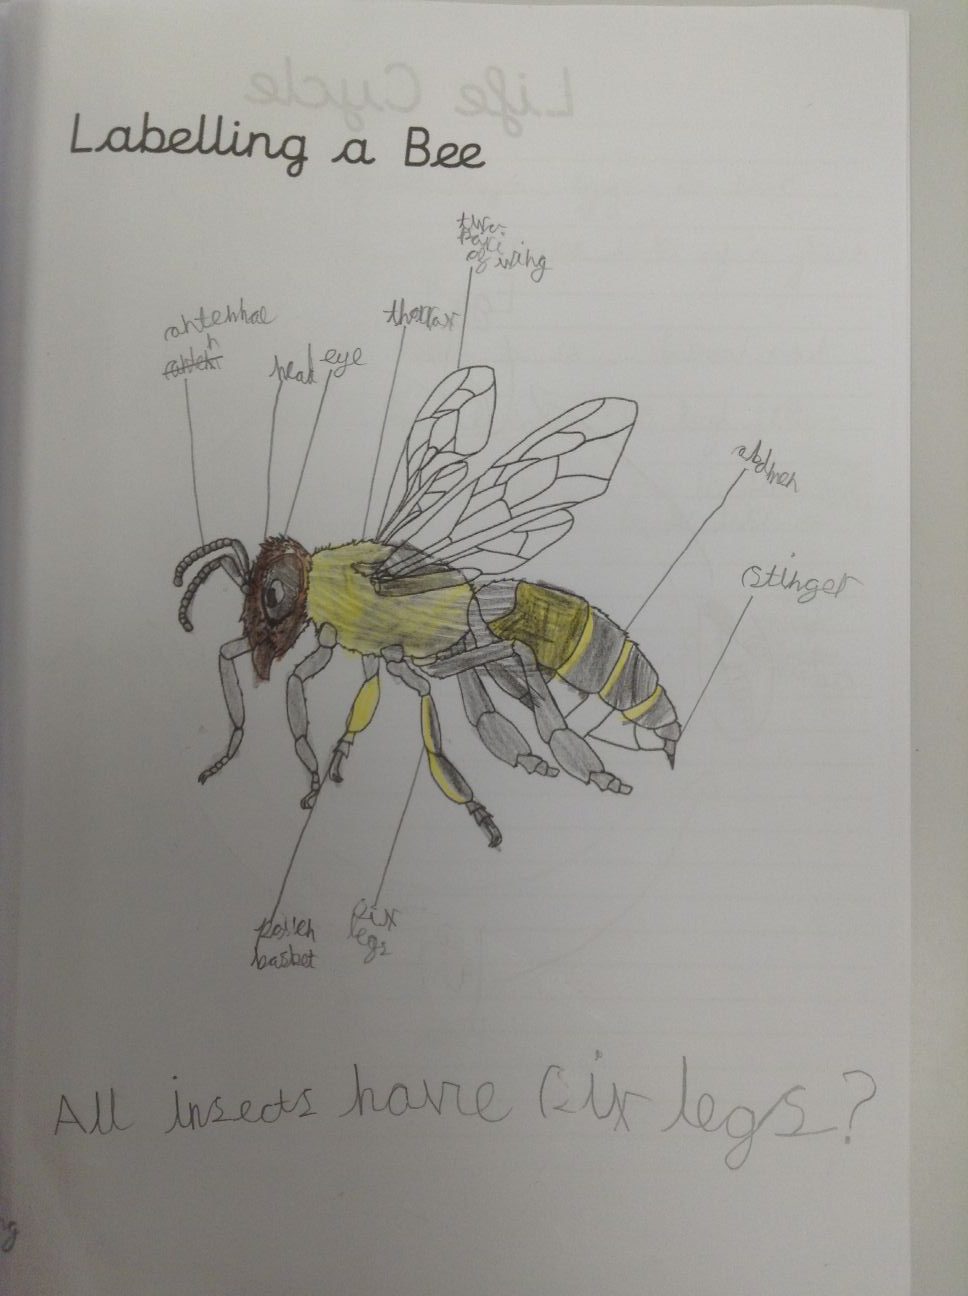 Life Cycle
Labelling a Bee
two
of wing
antennae
thorax
head
eye
abdmen
stinger
pollen
basket
six
legs
All insects have six legs?